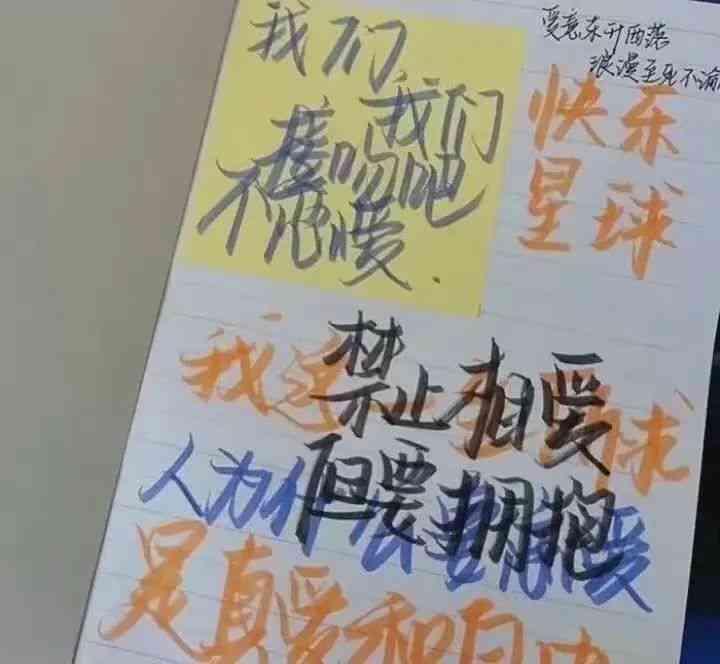 我们,
我们
接吻吧
不恋爱.
爱意东升西落
浪漫至死不渝
快乐
星球
我这一生所求
禁止相爱
但要拥抱
人为什么要恋爱
是真爱和自由